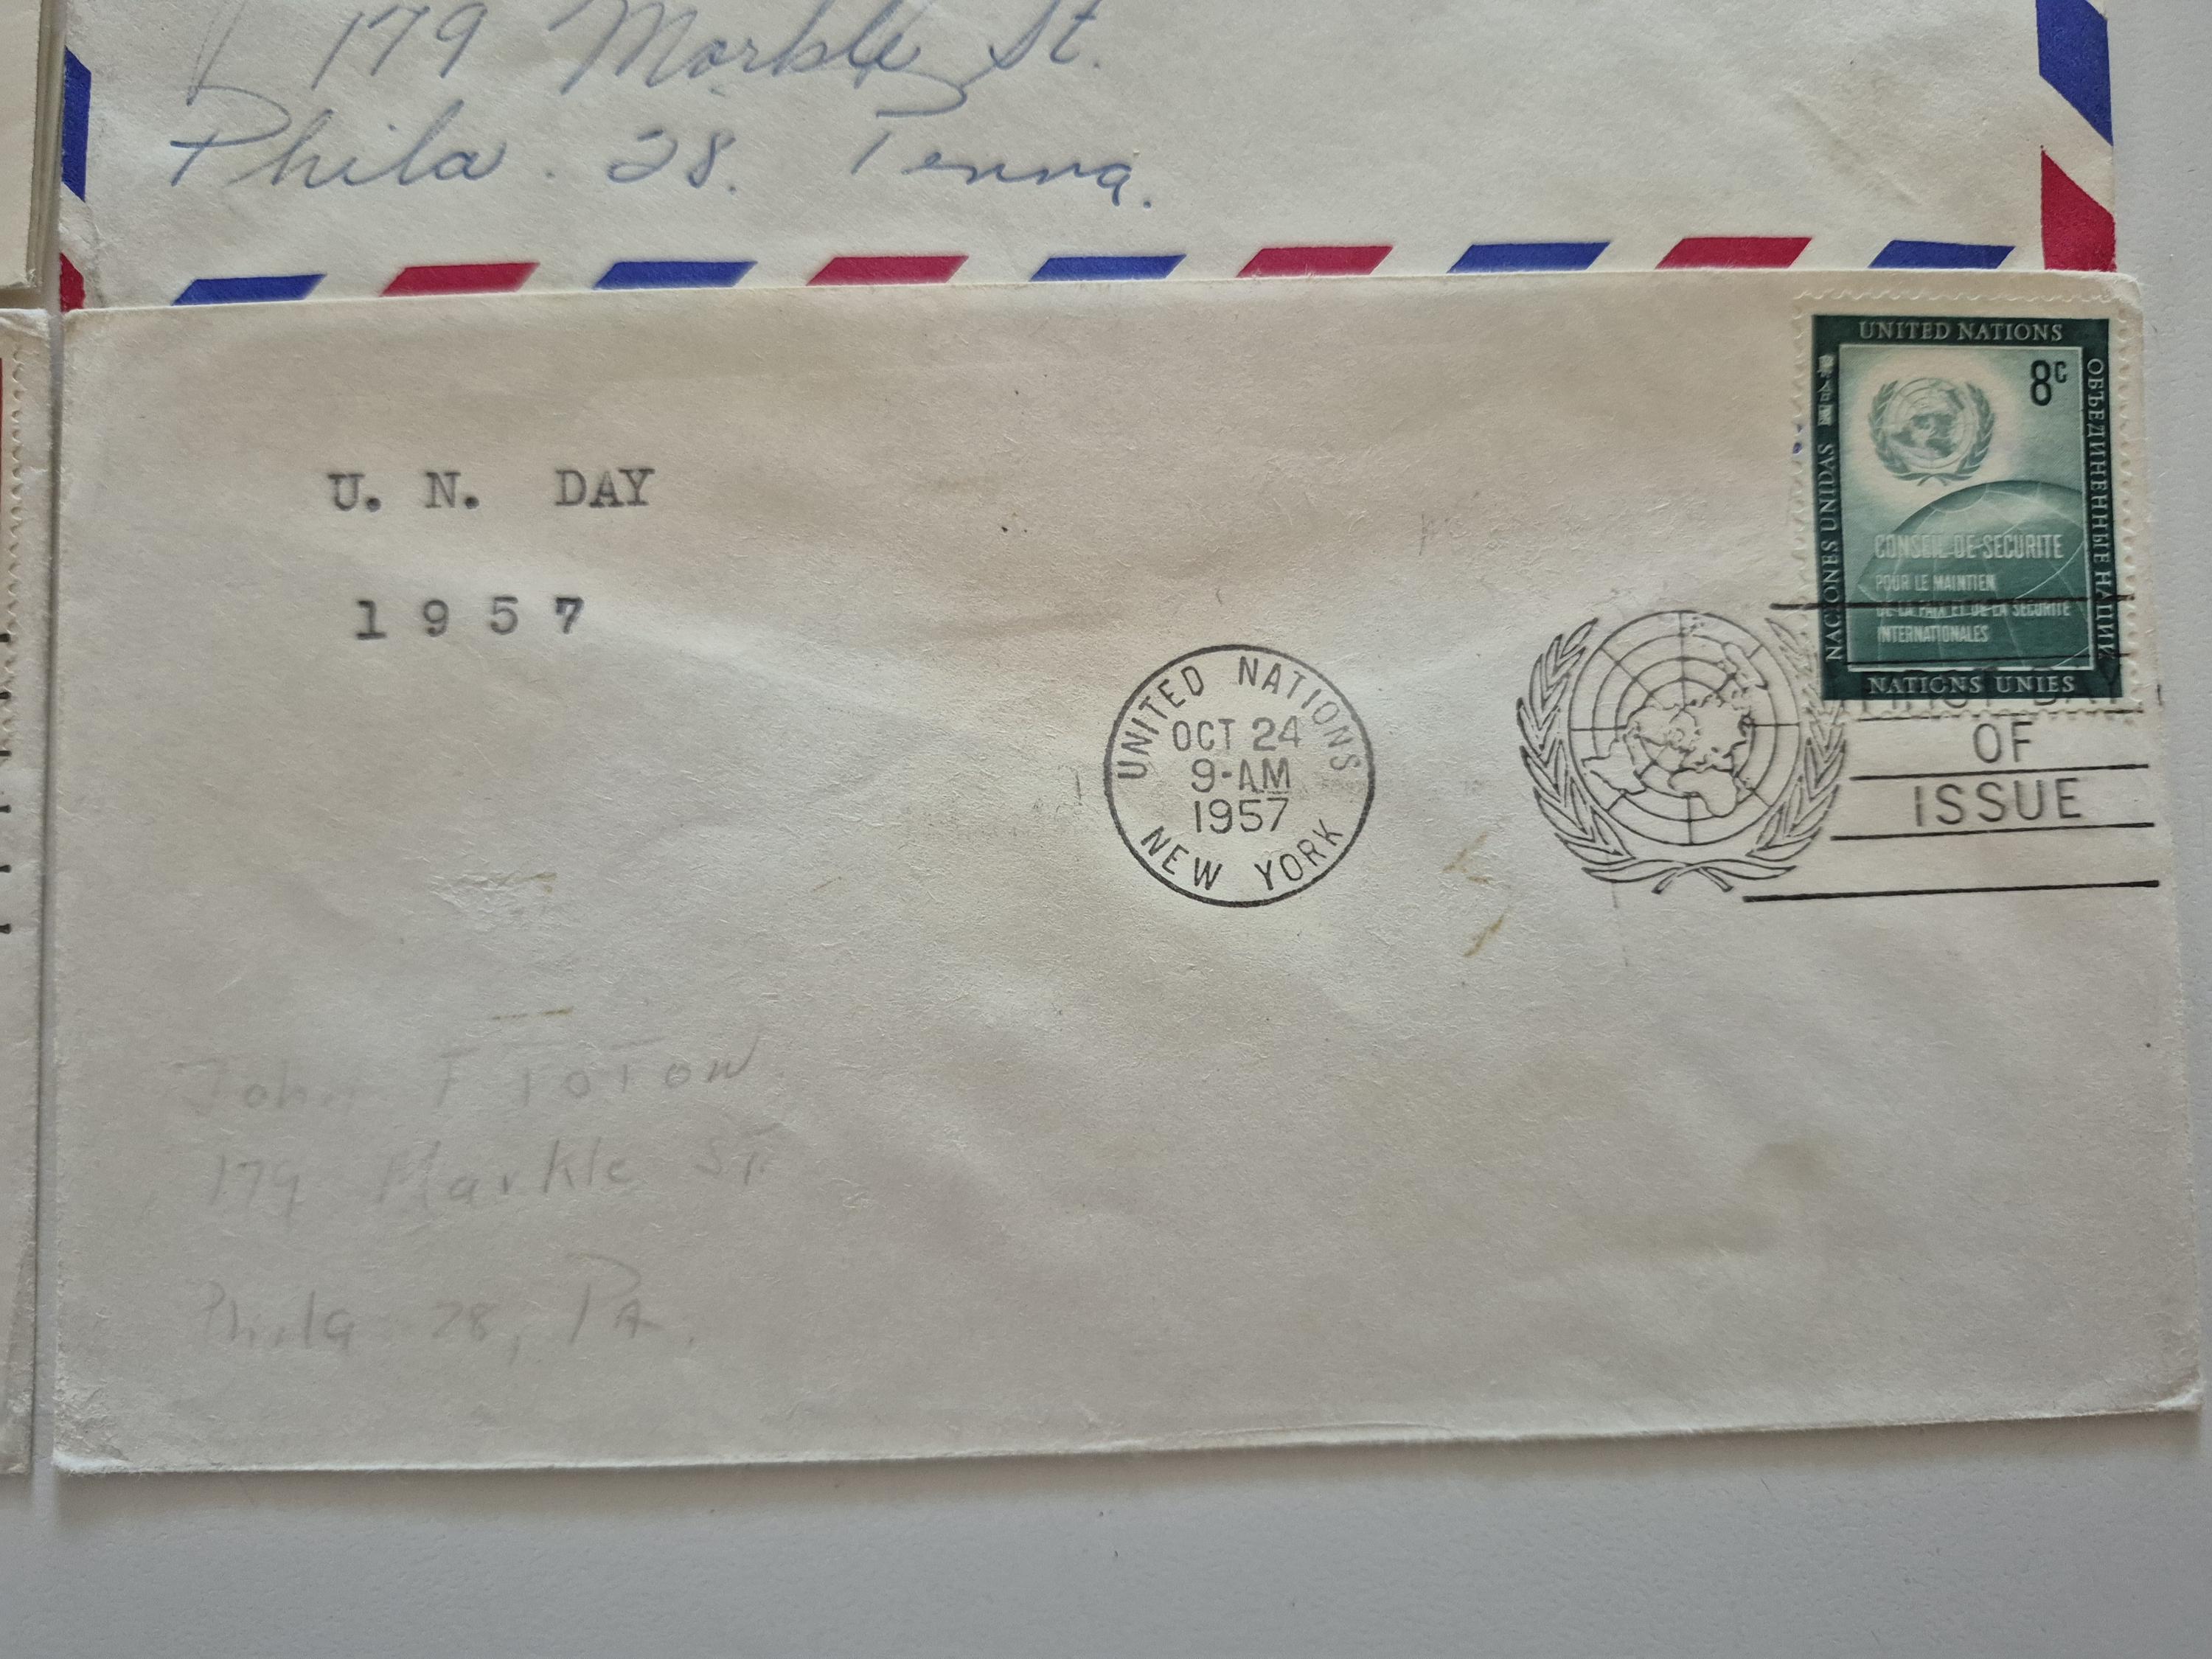 179 Markle St.
Phila. 28. Penna.
U. N. DAY
1957
UNITED NATIONS
OCT 24
9-AM
1957
NEW YORK
UNITED NATIONS
8c
NACIONES UNIDAS
ОБЪЕДИНЕННЫЕ НАЦИИ
CONSEIL DE SECURITE
POUR LE MAINTIEN
DE LA PAIX ET DE LA SECURITE
INTERNATIONALES
NATIONS UNIES
FIRST DAY
OF
ISSUE
John F
179 Markle St
Phila 28, PA.